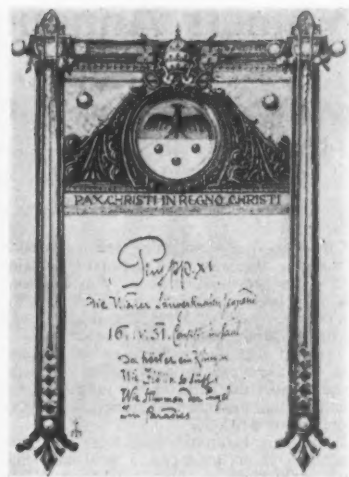 PAX.CHRISTI IN REGNO CHRISTI
Pius pp. XI
Die Wiener Sängerknaben
16. V. 31.
Da hört er ein Klingen
Wie Flöten so süß
Wie Stimmen der Engel
im Paradies